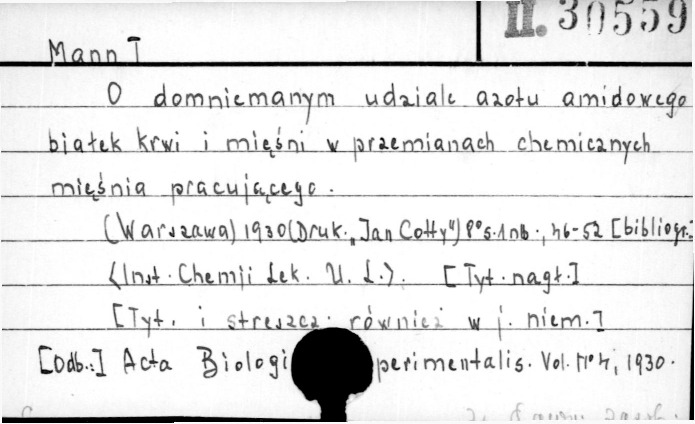 II. 30559
Mann T
O domniemanym udziale azotu amidowego
białek krwi i mięśni w przemianach chemicznych
mięśnia pracującego.
(Warszawa) 1930 (Druk. „Jan Cotty") 8° s. 1 nb., 46-52 [bibliogr.]
<Inst. Chemji Lek. U. L.>. [Tyt. nagł.]
[Tyt. i streszcz. również w j. niem.]
[Odb.:] Acta Biologi perimentalis. Vol. N° 4, 1930.